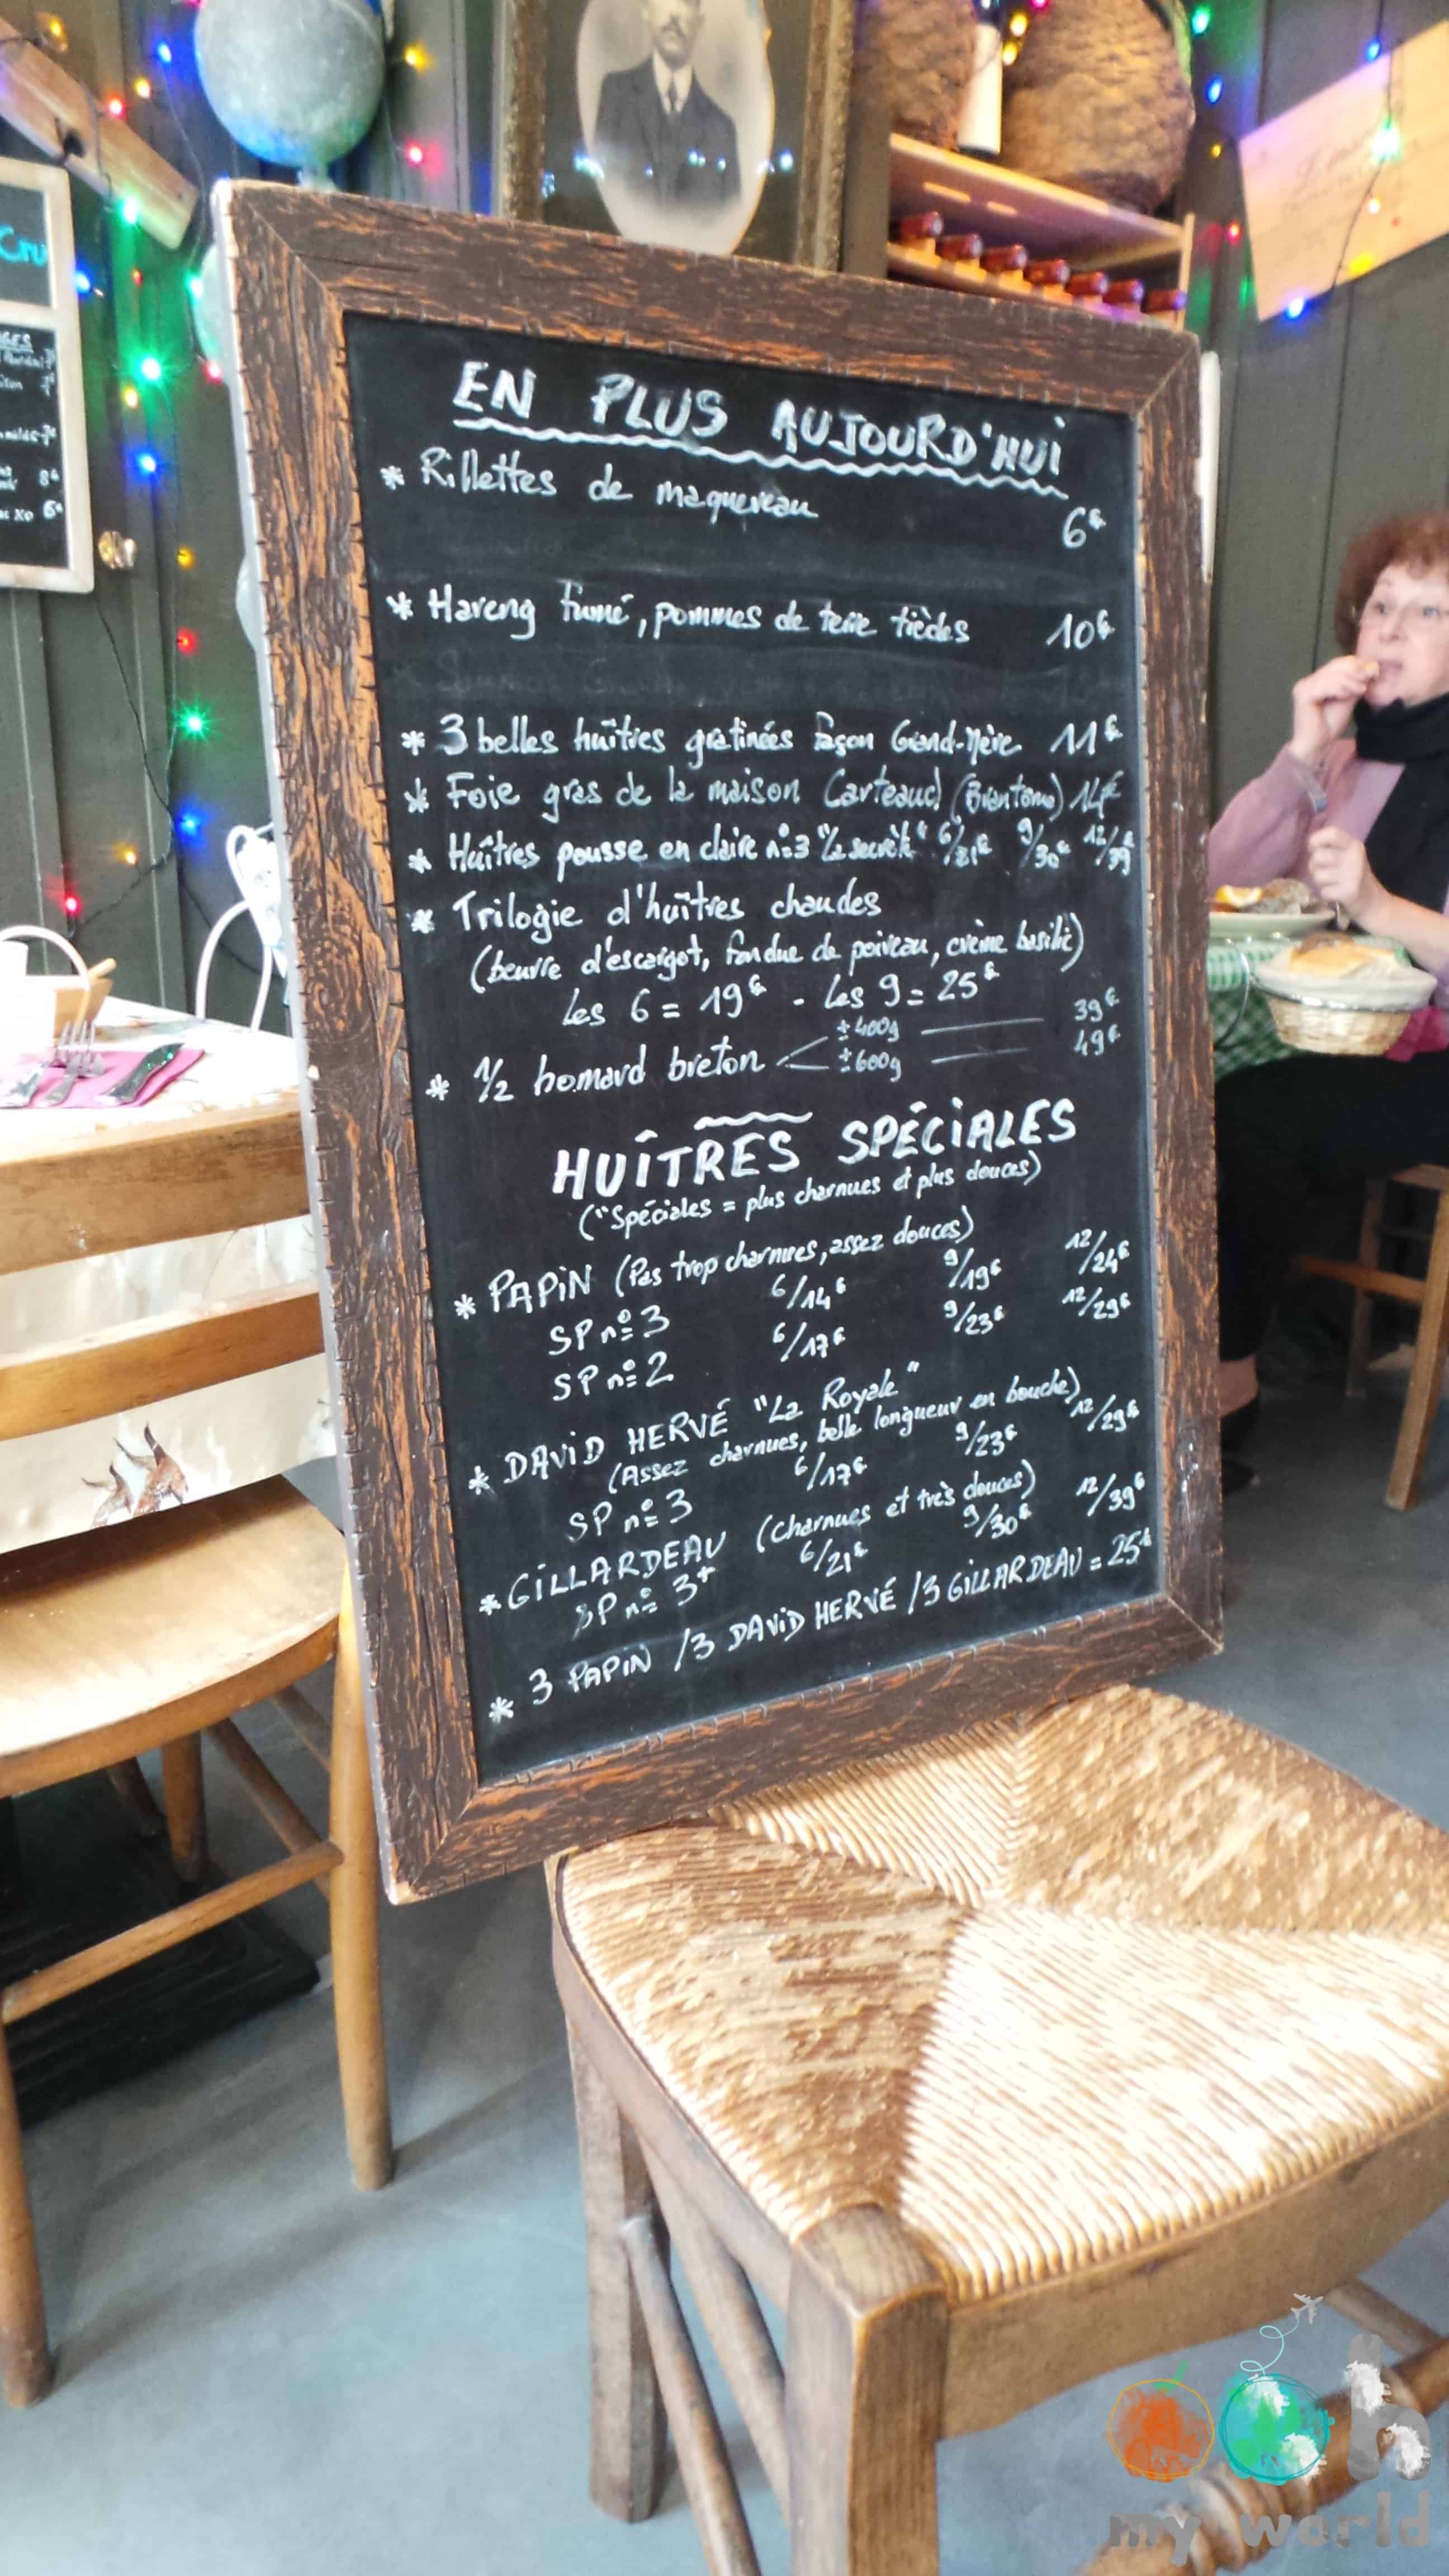 Cru
8€
XO 6€
EN PLUS AUJOURD'HUI
* Rillettes de maquereau 6€
* Hareng fumé, pommes de terre tièdes 10€
* 3 belles huîtres gratinées façon Grand-Mère 11€
* Foie gras de la maison Carteaud (Brantôme) 14€
* Huîtres pousse en claire n°3 "Le secrèt" 6/21€ 9/30€ 12/39€
* Trilogie d'huîtres chaudes
(beurre d'escargot, fondue de poireau, crème basilic)
les 6 = 19€ - les 9 = 25€
* 1/2 homard breton < ±400g — 39€
±600g — 49€
HUÎTRES SPÉCIALES
("Spéciales = plus charnues et plus douces)
* PAPIN (Pas trop charnues, assez douces)
SP n°3 6/14€ 9/19€ 12/24€
SP n°2 6/17€ 9/23€ 12/29€
* DAVID HERVÉ "La Royale"
(Assez charnues, belle longueur en bouche)
SP n°3 6/17€ 9/23€ 12/29€
* GILLARDEAU (charnues et très douces)
SP n° 3+ 6/21€ 9/30€ 12/39€
* 3 PAPIN /3 DAVID HERVÉ /3 GILLARDEAU = 25€
ooh
my world